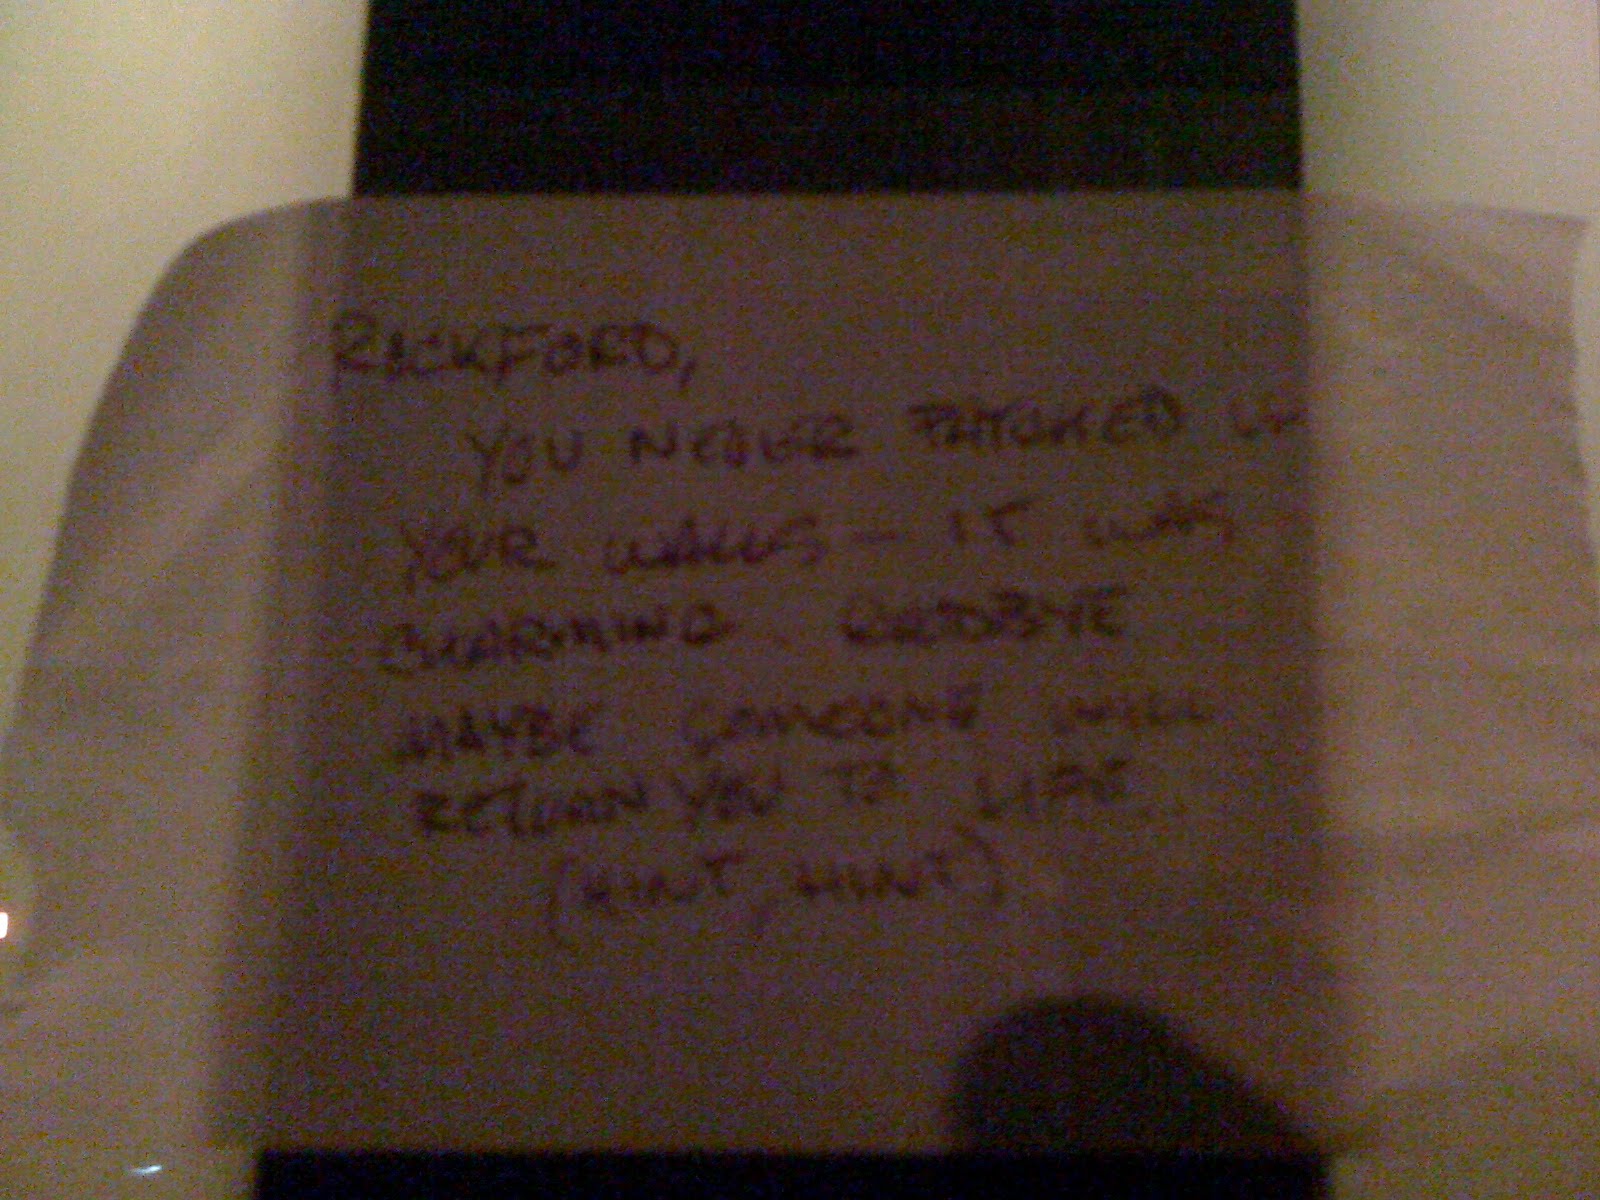 ROCKFORD,
YOU NEVER PATCHED
YOUR WALLS - IT WAS
CHARMING. GOODBYE
MAYBE SOMEONE WILL
RETURN YOU TO LIFE.
(HINT, HINT)